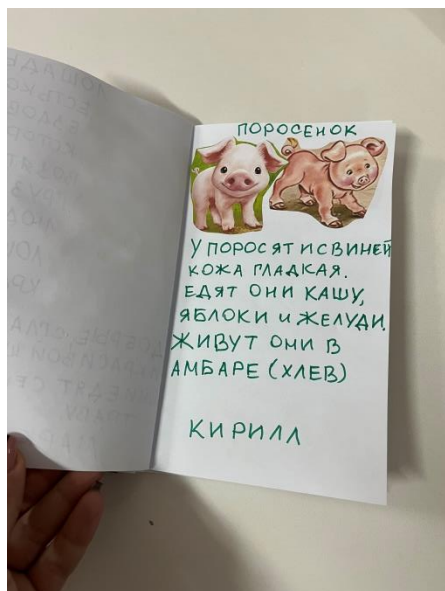 ПОРОСЕНОК
У ПОРОСЯТ И СВИНЕЙ
КОЖА ГЛАДКАЯ.
ЕДЯТ ОНИ КАШУ,
ЯБЛОКИ И ЖЕЛУДИ.
ЖИВУТ ОНИ В
АМБАРЕ (ХЛЕВ)
КИРИЛЛ